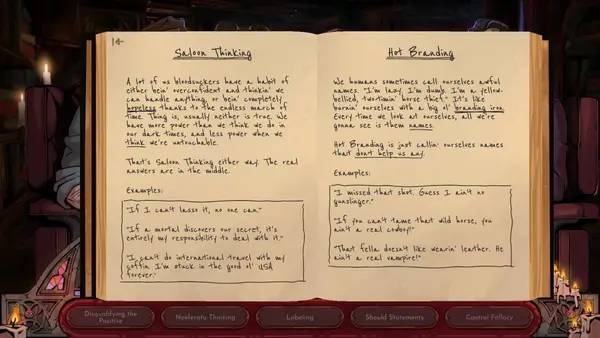 14
Saloon Thinking
A lot of us bloodsuckers have a habit of
either bein' overconfident and thinkin' we
can handle anything, or bein' completely
hopeless thanks to the endless march of
time. Thing is, usually neither is true. We
have more power than we think we do in
our dark times, and less power when we
think we're untouchable.
That's Saloon Thinking either way. The real
answers are in the middle.
Examples:
"If I can't lasso it, no one can."
"If a mortal discovers our secret, it's
entirely my responsibility to deal with it."
"I can't do international travel with my
coffin. I'm stuck in the good ol' USA
forever."
Hot Branding
We humans sometimes call ourselves awful
names. "I'm lazy. I'm dumb. I'm a yellow-
bellied, two-timin' horse thief." It's like
burnin' ourselves with a big ol' branding iron.
Every time we look at ourselves, all we're
gonna see is them names.
Hot Branding is just callin' ourselves names
that don't help us any.
Examples:
"I missed that shot. Guess I ain't no
gunslinger."
"If you can't tame that wild horse, you
ain't a real cowboy!"
"That fella doesn't like wearin' leather. He
ain't a real vampire!"
Disqualifying the
Positive
Nosferatu Thinking
Labeling
Should Statements
Control Fallacy